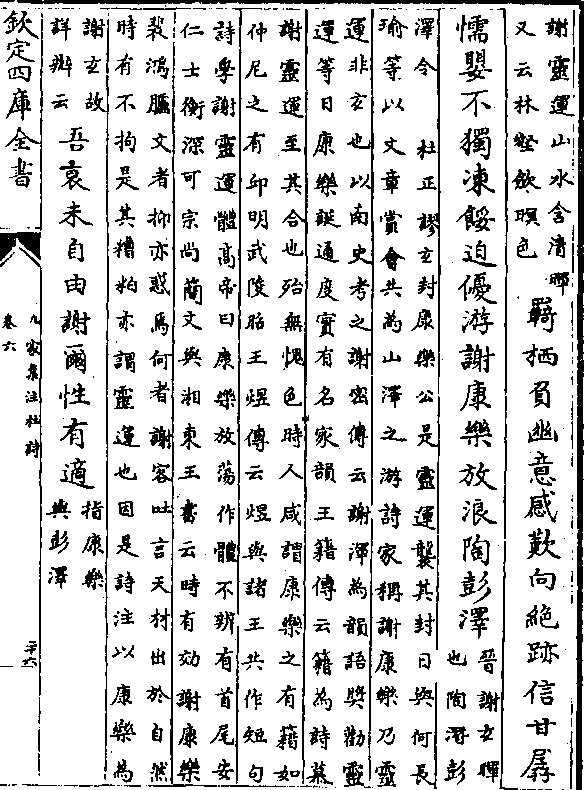 謝靈運山水含清暉
又云林壑斂暝色
羇栖負幽意感歎向絶跡信甘孱
懦嬰不獨凍餒迫優游謝康樂放浪陶彭澤
晉謝玄暉
也陶潛彭
澤令　杜正謬玄封康樂公是靈運襲其封日與何長
瑜等以文章賞會共為山澤之游詩家稱謝康樂乃靈
運非玄也以南史考之謝密傳云謝渾為韻語奬勸靈
運等曰康樂誕通度實有名家韻王籍傳云籍為詩慕
謝靈運至其合也殆無愧色時人咸謂康樂之有籍如
仲尼之有邱明武陵昭王煜傳云煜與諸王共作短句
詩學謝靈運體高帝曰康樂放蕩作體不辨有首尾安
仁士衡深可宗尚簡文與湘東王書云時有効謝康樂
裴鴻臚文者抑亦惑焉何者謝客吐言天材出於自然
時有不拘是其糟粕亦謂靈運也因是詩注以康樂為
謝玄故
詳辨云
吾衰未自由謝爾性有適
指康樂
與彭澤
欽定四庫全書
九家集注杜詩
卷六
二十六